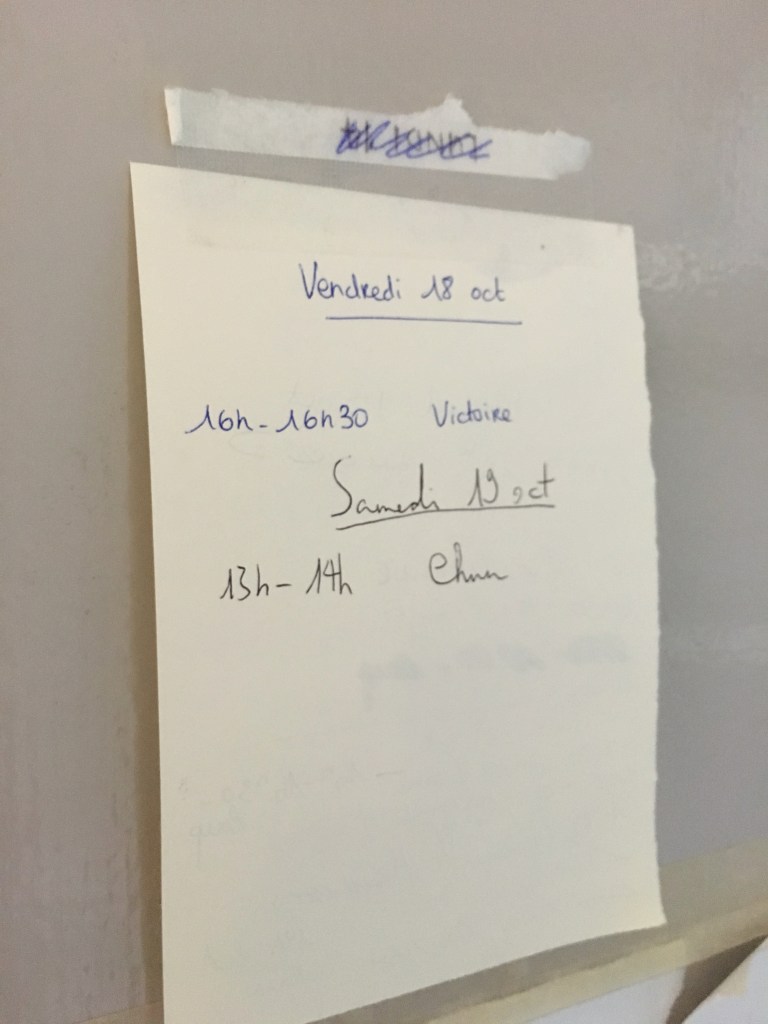 Vendredi 18 oct
16h - 16h30 Victoire
Samedi 19 oct
13h - 14h